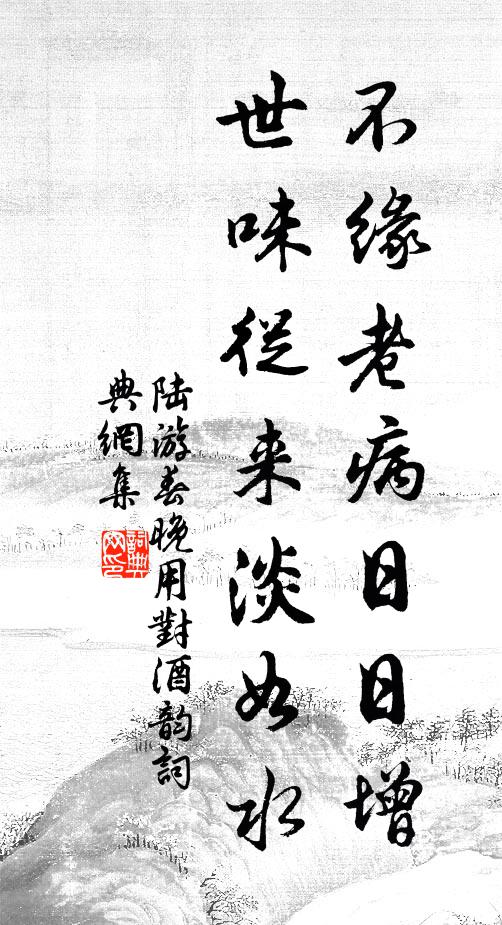 不緣老病日日增
世味從来淡如水
陆游春晚用對酒韵詞
典網集
詞典
网印